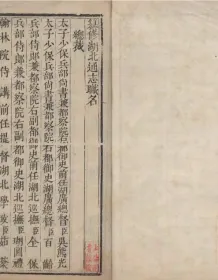 修湖北通志職名
總裁
太子少保兵部尚書兼都察院右都御史前任湖廣總督吳熊光
太子少保兵部尚書兼都察院右都御史湖廣總督百齡
兵部侍郎兼都察院右副都御史前任湖北巡撫全保
兵部侍郎兼都察院右副都御史前任湖北巡撫瑚圖禮
翰林院侍講前任提督湖北學政茹棻